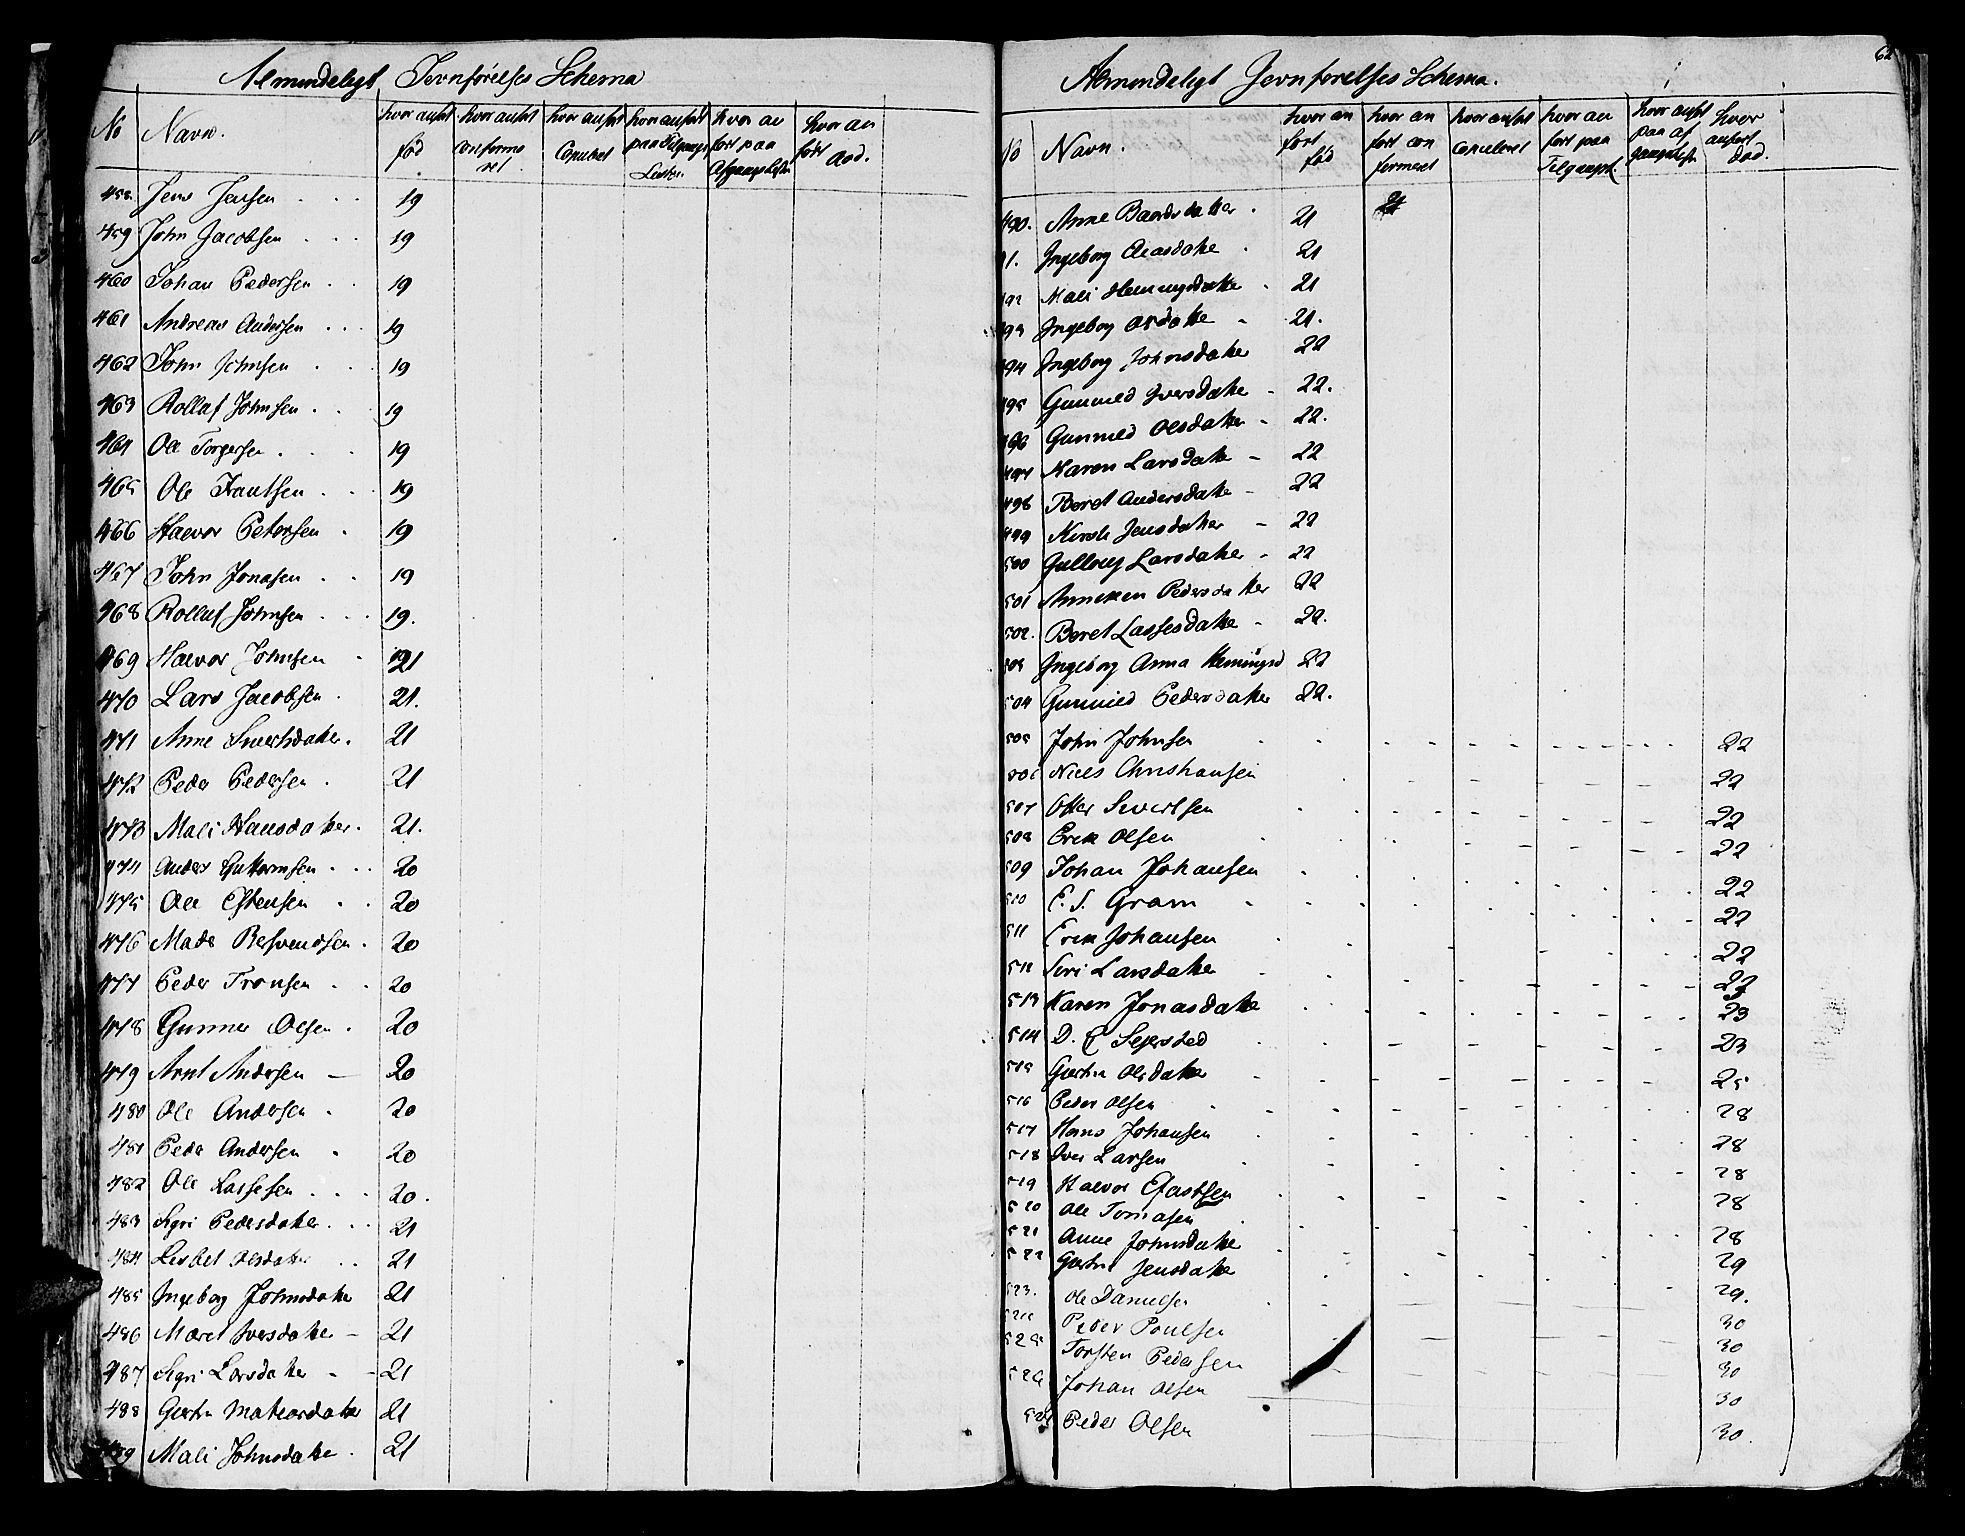 Almindeligt Jevnførelses Schema
No Navn. hvor anført fød hvor anført confirmeret hvor anført Copulert hvor anført paa Tilgangs Listen hvor anført paa Afgangs Listen hvor anført død.
458. Jens Jensen . . . 19
459 John Jacobsen . . . 19
460 Johan Pedersen . . 19
461 Andreas Andersen . . . 19
462 John Johnsen . . . 19
463 Rollaf Johnsen . . . 19
464 Ole Torgersen . . . 19
465 Ole Frantsen . . . 19
466 Halvor Petersen . 19
467 John Jonasen . . 19
468 Rollaf Johnsen . . . 19.
469 Halvor Johnsen . 21
470 Lars Jacobsen . 21.
471 Anne Sivertsdatter. 21
472 Peder Pedersen . 21
473 Mali Hansdatter. 21.
474 Anders Guttormsen . . . 20
475 Ole Estensen . . 20
476 Mads Bersvendsen . 20
477 Peder Tronsen . . 20
478 Gunner Olsen . 20
479 Arnt Andersen — 20
480 Ole Andersen . 20
481 Peder Andersen . 20
482 Ole Lassesen . . . 20.
483 Sigri Pedersdatter . . . 21
484 Lisbet Olsdatter . . 21
485 Ingeborg Johnsdatter 21
486 Maret Iversdatter – 21
487 Sigri Larsdatter - - 21
488 Gjertru Mathiasdatter 21
489 Mali Johnsdatter . 21
62
Almindeligt Jevnførelses Schema.
No Navn. hvor anført fød hvor anført confirmeret hvor anført copuleret hvor anført paa Tilgangsl. hvor anført paa afgangslisten hvor anført død.
490. Anne Baardsdatter . 21
91. Ingeborg Olasdatter . 21
492 Mali Hemmingsdatter . 21
493 Ingeborg Olsdatter - 21.
494 Ingeborg Johnsdatter 22
495 Gunnild Iversdatter - 22.
496 Gunnild Olsdatter - 22.
497 Maren Larsdatter – 22
498 Beret Andersdatter - 22
499 Kirsti Jensdatter – 22
500 Gullaug Larsdatter - 22
501 Anneken Pedersdatter 22
502. Beret Lassesdatter - 22.
503 Ingeborg Anna Hemingsd 22
504 Gunnild Pedersdatter 22.
505 John Johnsen 22
506 Niels Christiansen 22
507 Otter Sivertsen 22
508 Erik Olsen 22
509 Johan Johansen 22
510 E. S. Gram 22
511 Erik Johansen 22
512 Siri Larsdatter 22
513 Karen Jonasdatter 23
514 D. E Sejersted 23
515 Gjertru Olsdatter 25
516 Peder Olsen 28
517 Hans Johansen 28
518 Iver Larsen 28
519 Halvor Efastsen 28
520 Ole Tomasen 28
521 Anne Johnsdatter 29
522 Gjertru Jensdatter 29.
523. Ole Danielsen 30
524 Peder Poulsen 30
525 Torsten Pedersen 30
526 Johan Olsen 30
527 Peder Olsen 30.